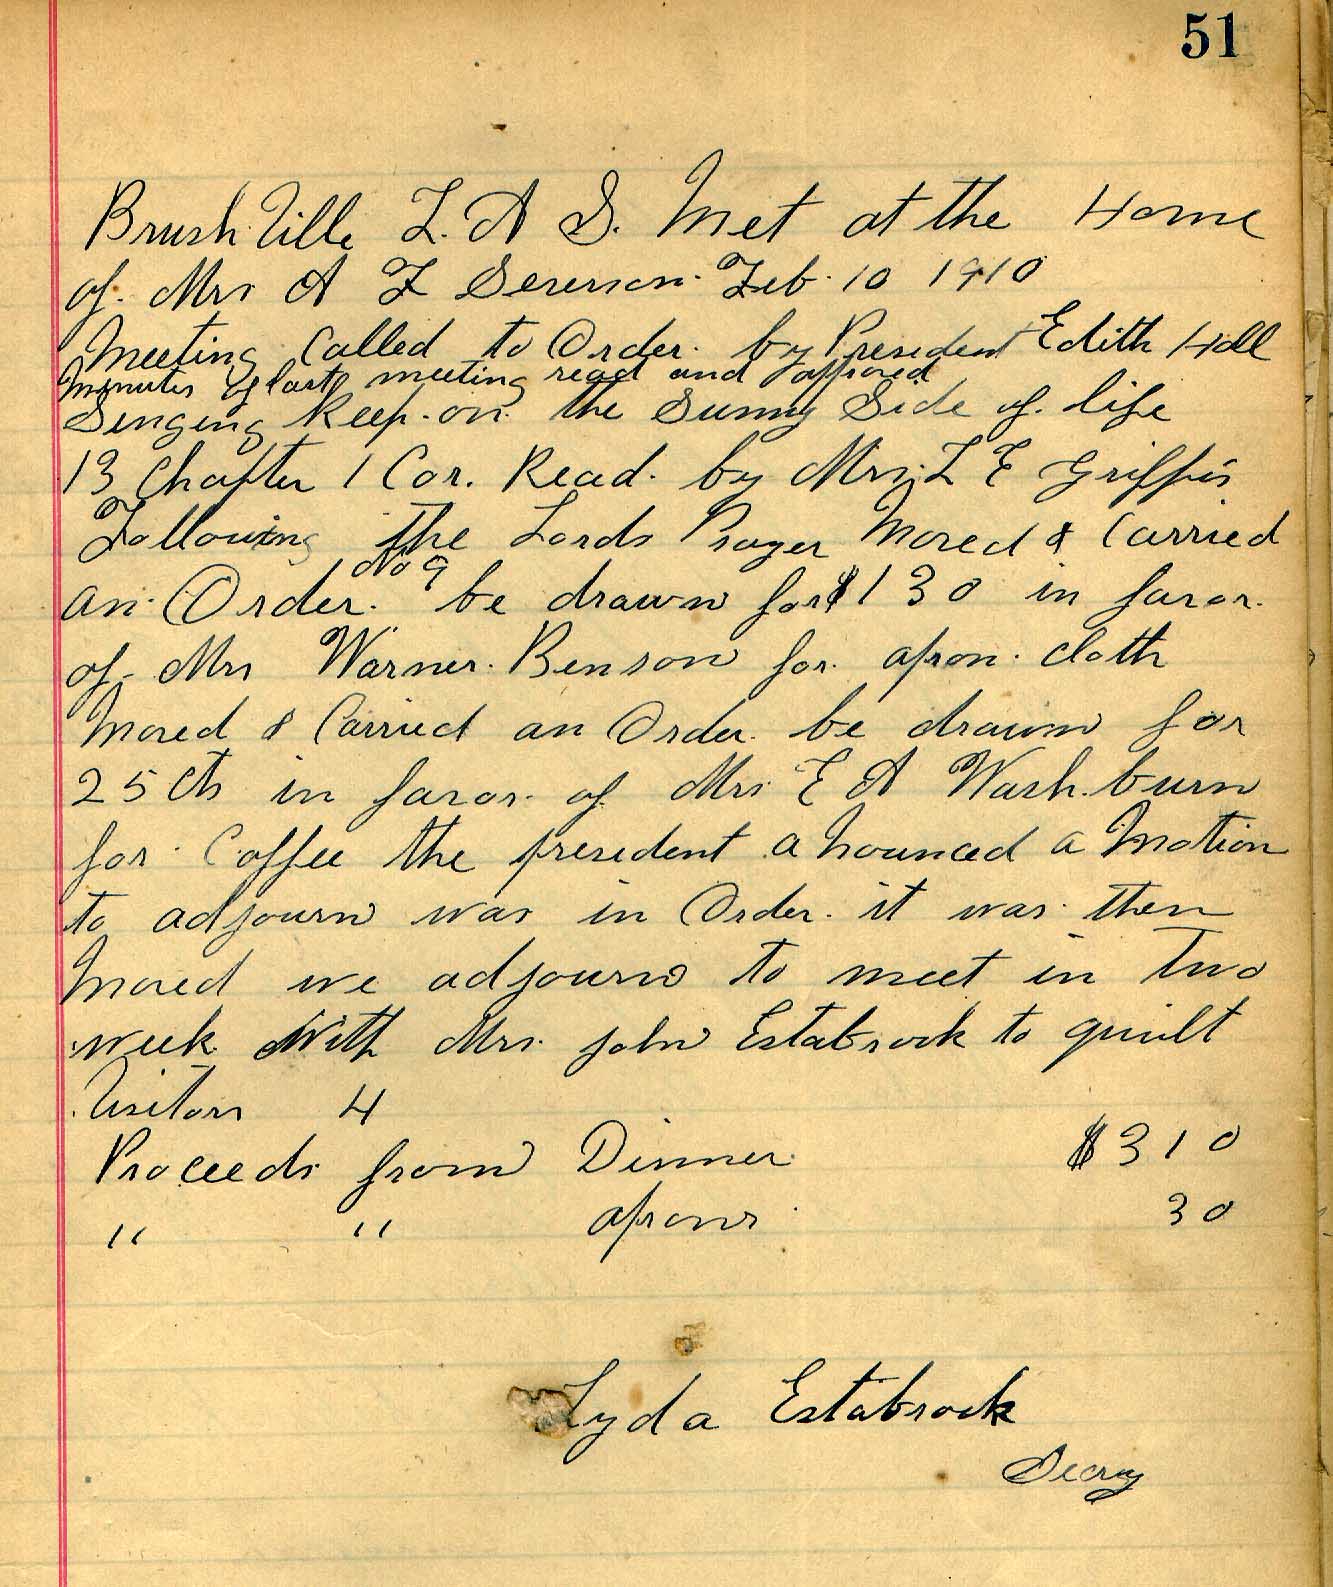 51
Brushville L. A S. Met at the Home
of Mrs A F Severson Feb. 10 1910
Meeting Called to Order by President Edith Hall
minutes of last meeting read and approved
Singing Keep on the Sunny Side of life
13 Chapter 1 Cor. Read by Mrs L E Griffis
Following the Lords Prayer Moved & Carried
No 9
an Order be drawn for $1 30 in favor
of Mrs Warner Benson for apron cloth
Moved & Carried an Order be drawn for
25 cts in favor of Mrs E A Washburn
for Coffee the president anounced a Motion
to adjourn was in Order it was then
Moved we adjourn to meet in Two
week With Mrs John Estabrook to quilt
Visitors 4
Proceeds from Dinner $3 10
" " aprons 30
Lyda Estabrook
Secry